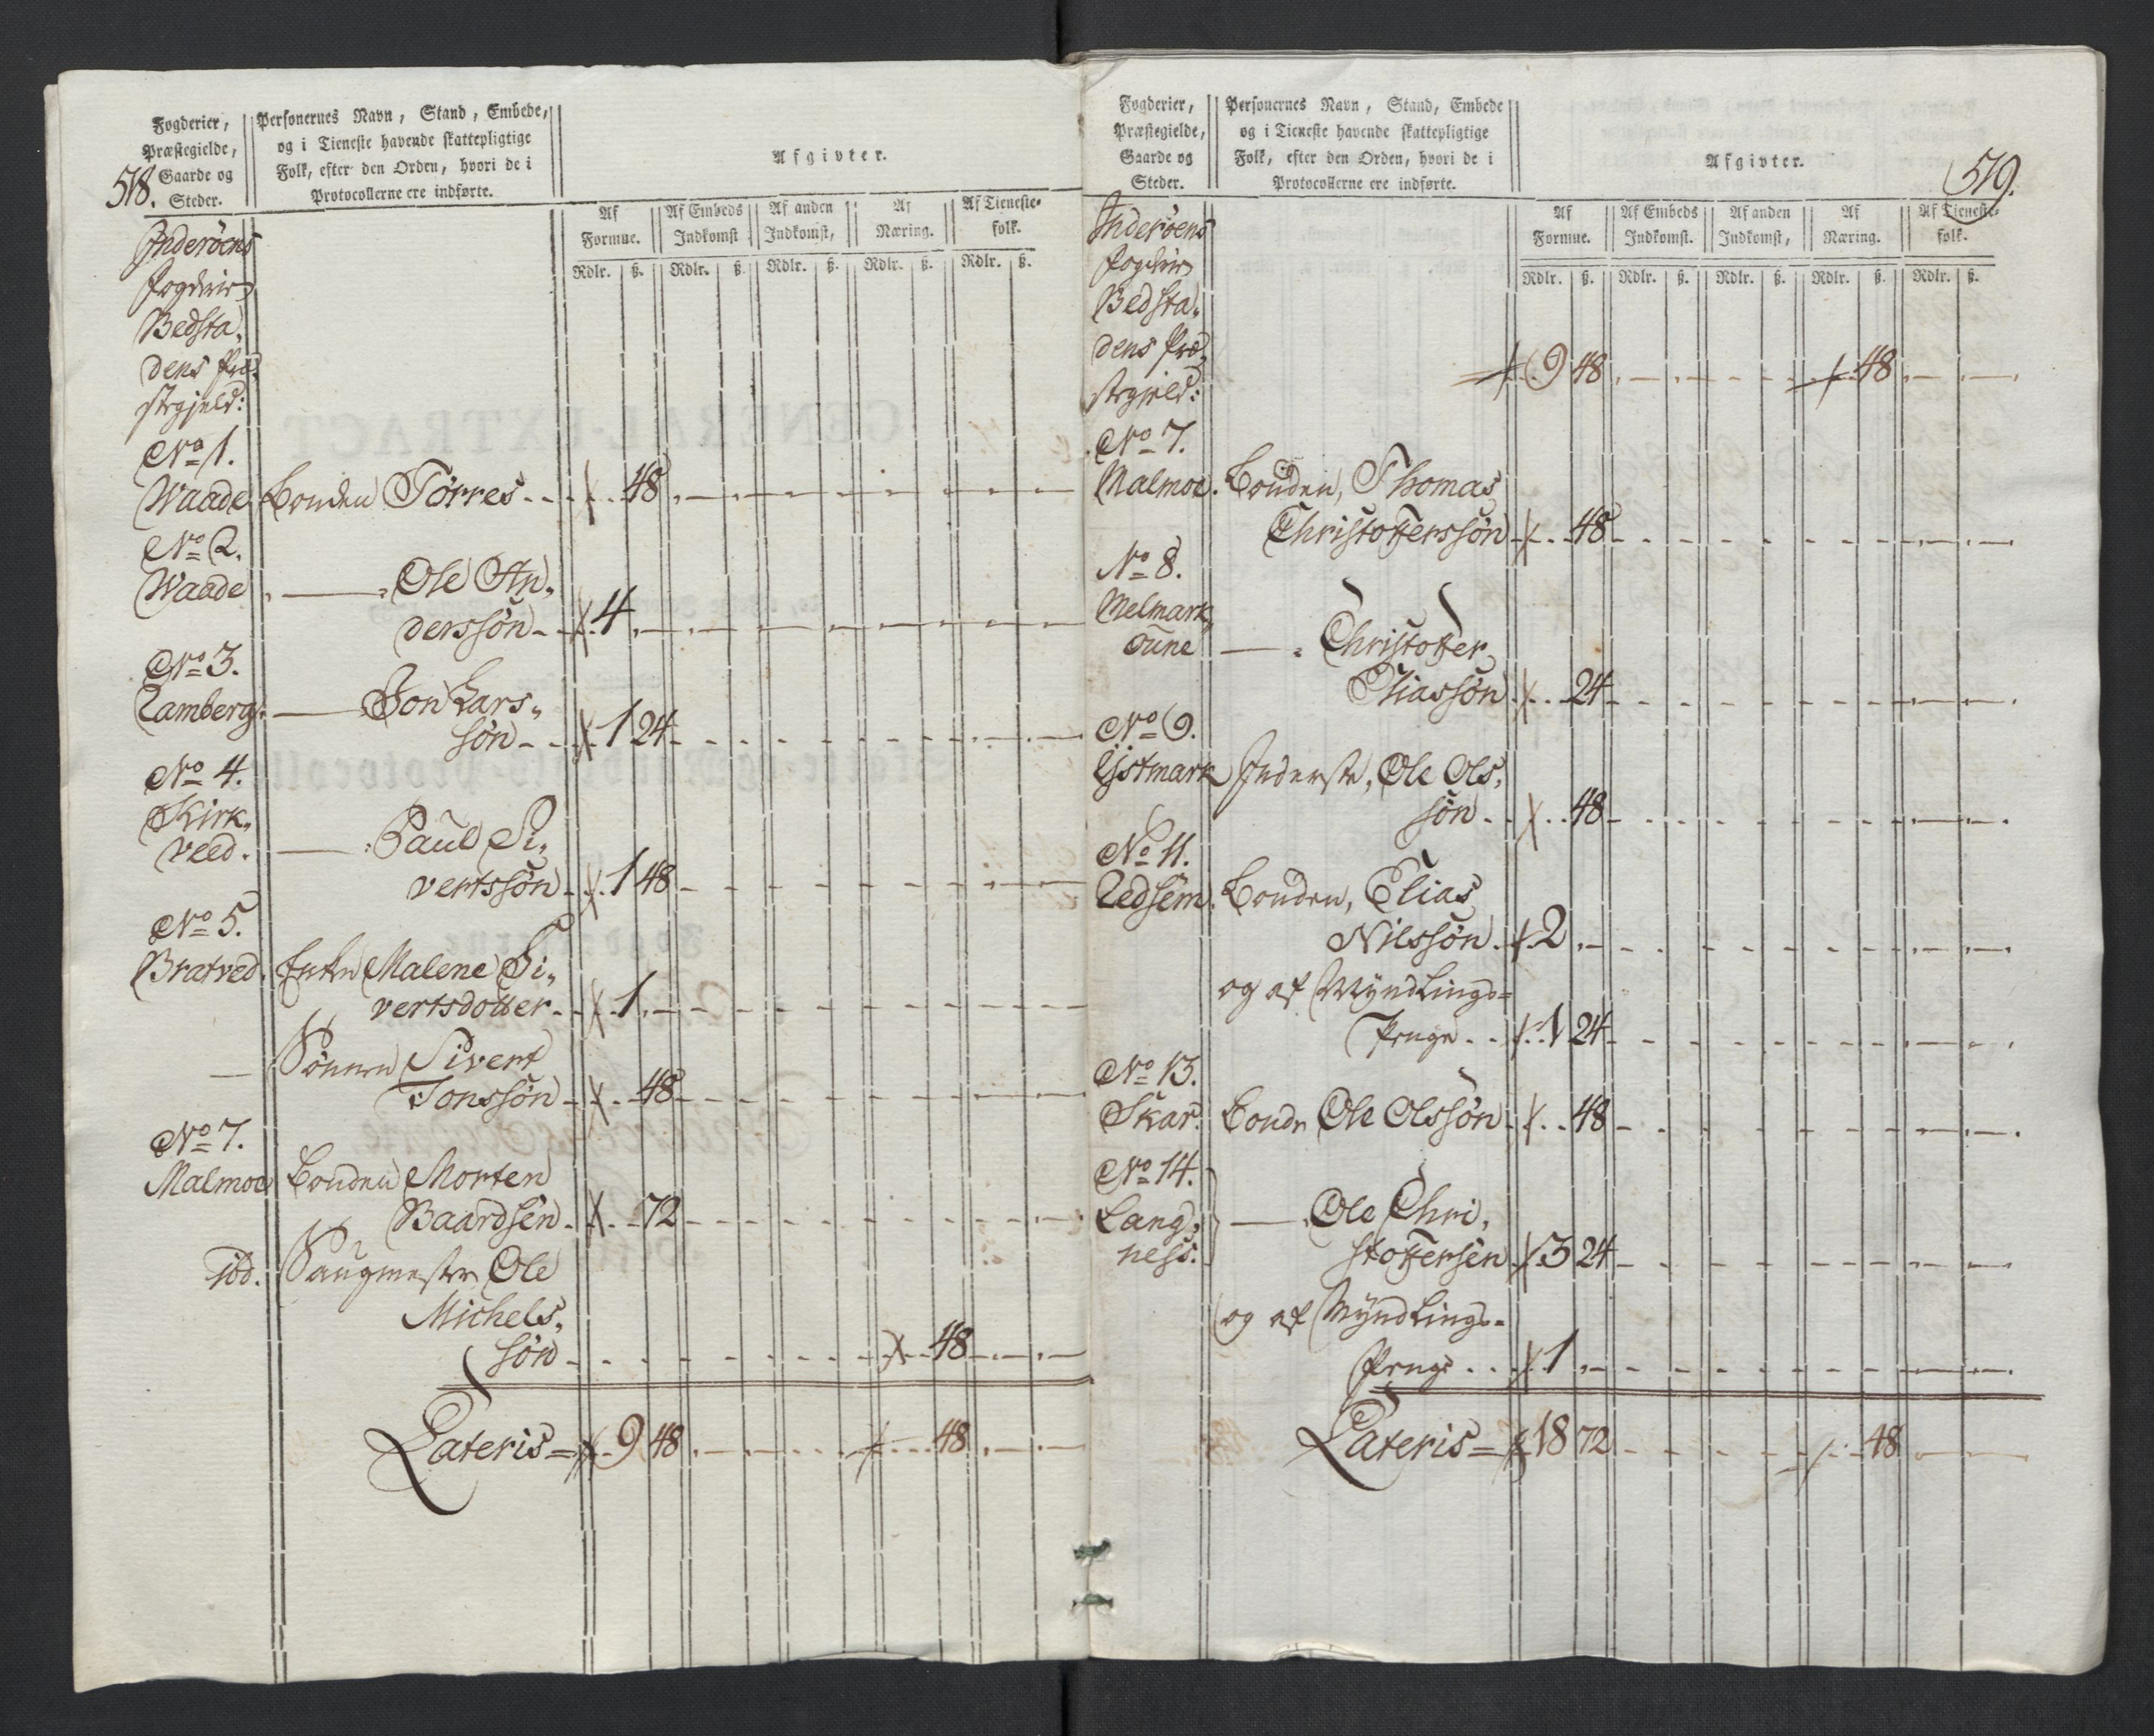 518.
Fogderier,
Præstegielde,
Gaarde og
Steder.
Personernes Navn, Stand, Embede,
og i Tieneste havende skattepligtige
Folk, efter den Orden, hvori de i
Protocollerne ere indførte.
Afgivter.
Af Formue.
Af Embeds Indkomst
Af anden Indkomst,
Af Næring.
Af Tieneste-folk.
Rdlr. ß. Rdlr. ß. Rdlr. ß. Rdlr. ß. Rdlr. ß.
Inderøens
Fogderie
Bedsta,
dens Præ,
stegjeld:
No 1.
Waade Bonden Törres - - 48
No 2.
Waade Ole An,
derssön - - 4
No 3.
Lamberg. Jon Lars,
sön - - 1 24
No 4.
Kirk,
veed. Paul Si,
vertssön - 1 48
No 5.
Bratved. Enken Malene Si,
vertsdotter - 1
Sönnen Sivert
Jonssön - 48
No 7.
Malmoe Bonden Morten
Baardsen - 72
ibd. Saugmester Ole
Michels,
sön - - 48
Lateris = 9 48 - - 48
519.
Fogderier,
Præstegielde,
Gaarde og
Steder.
Personernes Navn, Stand, Embede
og i Tieneste havende skattepligtige
Folk, efter den Orden, hvori de i
Protocollerne ere indførte.
Afgivter.
Af Formue.
Af Embeds Indkomst.
Af anden Indkomst,
Af Næring.
Af Tieneste-folk.
Rdlr. ß. Rdlr. ß. Rdlr. ß. Rdlr. ß. Rdlr. ß.
Inderøens
Fogderie
Bedsta,
dens Præ, 9 48 - - 48
stegjeld:
No 7.
Malmoe. Bonden, Thomas
Christofferssön - 48
No 8.
Melmark,
oune Christoffer
Eliassön - 24
No 9.
Ystmark Inderste, Ole Ols,
sön - - 48
No 11.
Ledsem. Bonden, Elias
Nilssön - 2
og af Myndlings=
Penge - - 1 24
No 13.
Skar. Bonden Ole Olssön - 48
No 14.
Lang,
ness. Ole Chri,
stoffersen 3 24
og af Myndlings-
Penge - - 1
Lateris = 18 72 - - 48